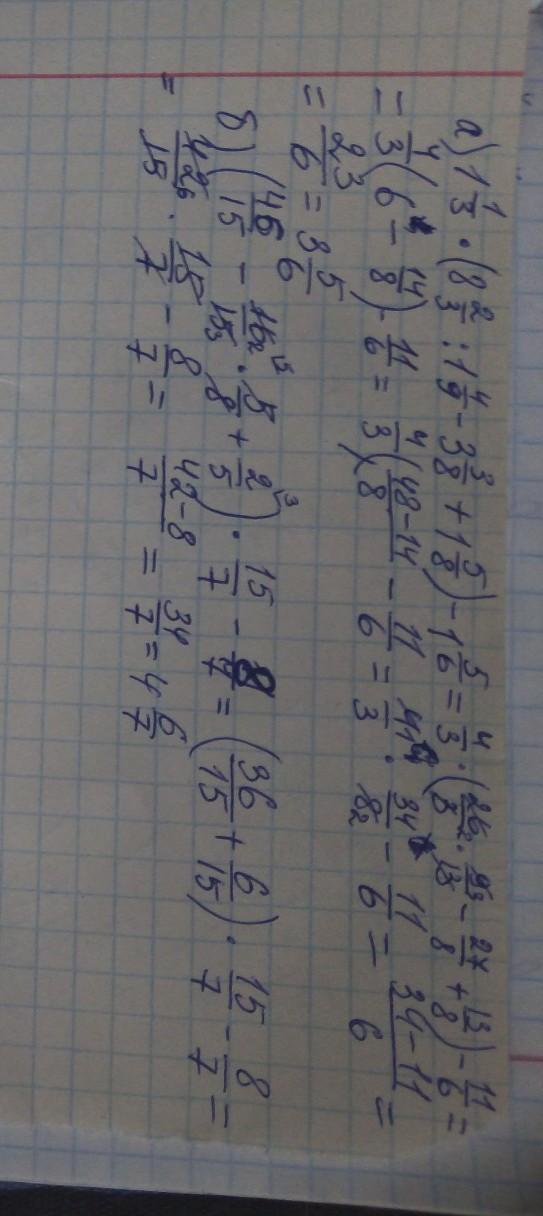 а) 1 1/3 · (8 2/3 : 1 4/9 - 3 3/8 + 1 5/8) - 1 5/6 = 4/3 · (26/3 · 9/13 - 27/8 + 13/8) - 11/6 =
= 4/3 (6 - 14/8) - 11/6 = 4/3 (48-14/8 - 11/6 = 4/3 · 34/8 - 11/6 = 34-11/6 =
= 23/6 = 3 5/6
б) (46/15 - 16/15 · 5/8 + 2/5) · 15/7 - 8/7 = (36/15 + 6/15) · 15/7 - 8/7 =
= 42/15 · 15/7 - 8/7 = 42-8/7 = 34/7 = 4 6/7